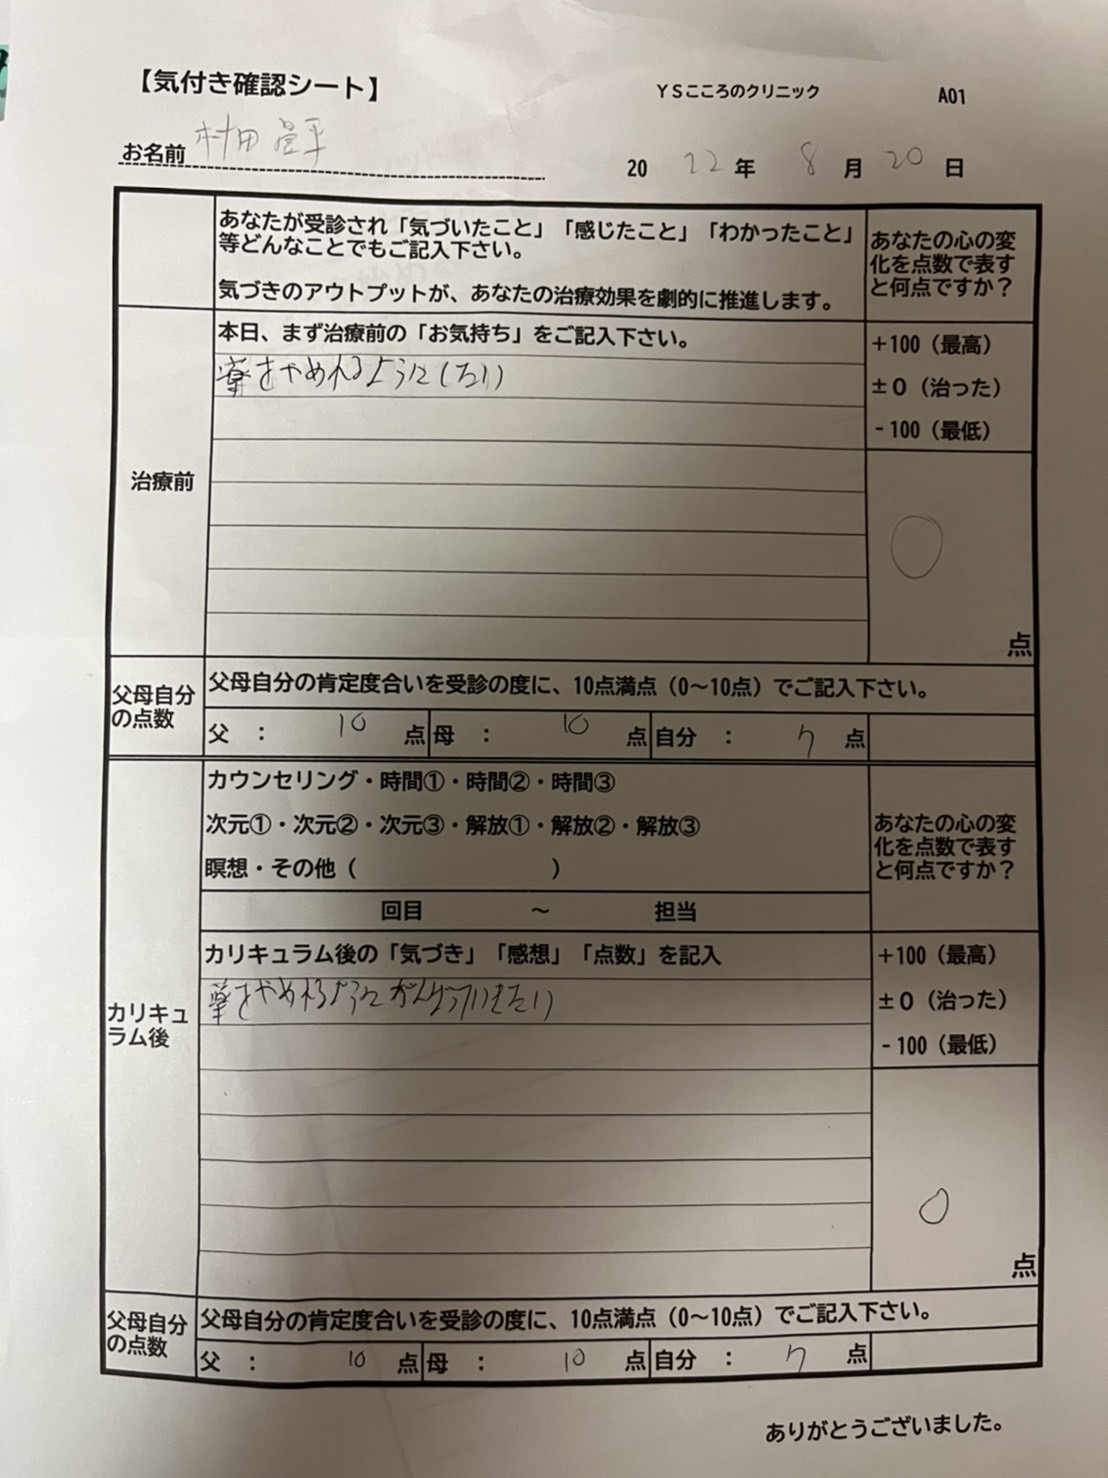 【気付き確認シート】 YSこころのクリニック A01
お名前 村田 2022年 8月20日
あなたが受診され「気づいたこと」「感じたこと」「わかったこと」
等どんなことでもご記入下さい。
気づきのアウトプットが、あなたの治療効果を劇的に推進します。
あなたの心の変
化を点数で表す
と何点ですか？
治療前
本日、まず治療前の「お気持ち」をご記入下さい。
薬をやめれるようにしたい
+100（最高）
±0（治った）
-100（最低）
0
点
父母自分
の点数
父母自分の肯定度合いを受診の度に、10点満点（0～10点）でご記入下さい。
父 ： 10 点 母 ： 10 点 自分 ： 7 点
カリキュ
ラム後
カウンセリング・時間①・時間②・時間③
次元①・次元②・次元③・解放①・解放②・解放③
瞑想・その他（ ）
回目 ～ 担当
あなたの心の変
化を点数で表す
と何点ですか？
カリキュラム後の「気づき」「感想」「点数」を記入
薬をやめれるようにがんばっていきたい
+100（最高）
±0（治った）
-100（最低）
0
点
父母自分
の点数
父母自分の肯定度合いを受診の度に、10点満点（0～10点）でご記入下さい。
父 ： 10 点 母 ： 10 点 自分 ： 7 点
ありがとうございました。